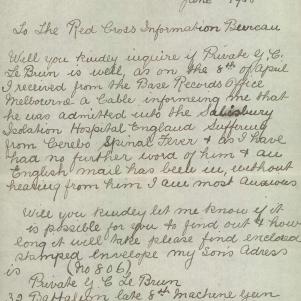 June 19
To The Red Cross Information Bureau
Will you kindly inquire if Private G. C.
Le Brun is well, as on the 8th of April
I received from the Base Records Office
Melbourne a Cable informing me that
he was admitted into the Salisbury
Isolation Hospital England Suffering
from Cerebo Spinal Fever & as I have
had no further word of him & an
English mail has been in, without
hearing from him I am most anxious
Will you kindly let me know if it
is possible for you to find out & how
long it will take please find enclosed
stamped envelope my Sons Adress
is (No 806)
Private G C Le Brun
32 Battalion late 8th Machine Gun